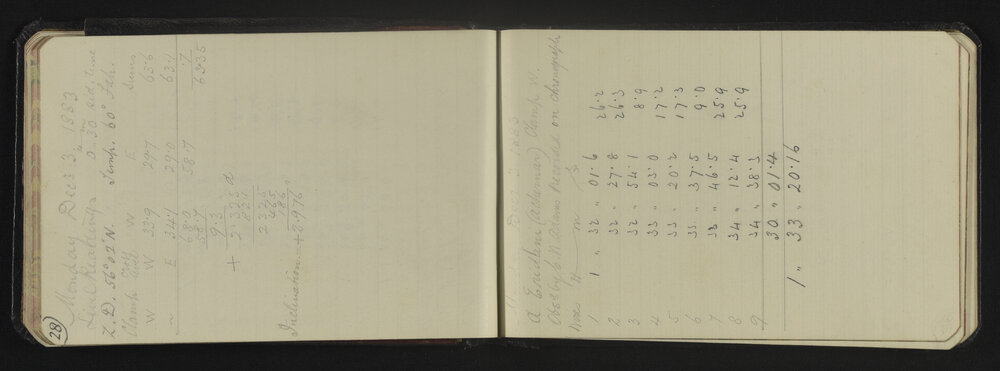 28
Monday Dec 3, 1883
Level Readings 0h 30m sid. time
Z.D. 56° 02' N. Temp. 60° Fah.
Clamp W E Sums
W W 33.9 29.7 63.6
" E 34.1 29.0 63.1
68.0 58.7 .7
58.7 63.35
9.3
+ 2.325 d
.837
2 325
465
186
Inclination = +8.976 "
Dec 3. 1883
α Eridani (Achernar) Clamp W.
Obsd by C. W. Adams recorded on chronograph
Wires H m S
1 1 " 32 " 01.6 26.2
2 32 " 27.8 26.3
3 32 " 54.1 8.9
4 33 " 03.0 17.2
5 33 " 20.2 17.3
6 33 " 37.5 9.0
7 33 " 46.5 25.9
8 34 " 12.4 25.9
9 34 " 38.3
30 " 01.4
1 " 33 " 20.16